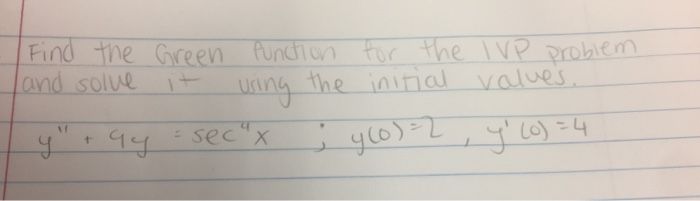 Find the Green function for the IVP problem
and solve it using the initial values.
y" + 9y = sec⁴x ; y(0)=2, y'(0)=4